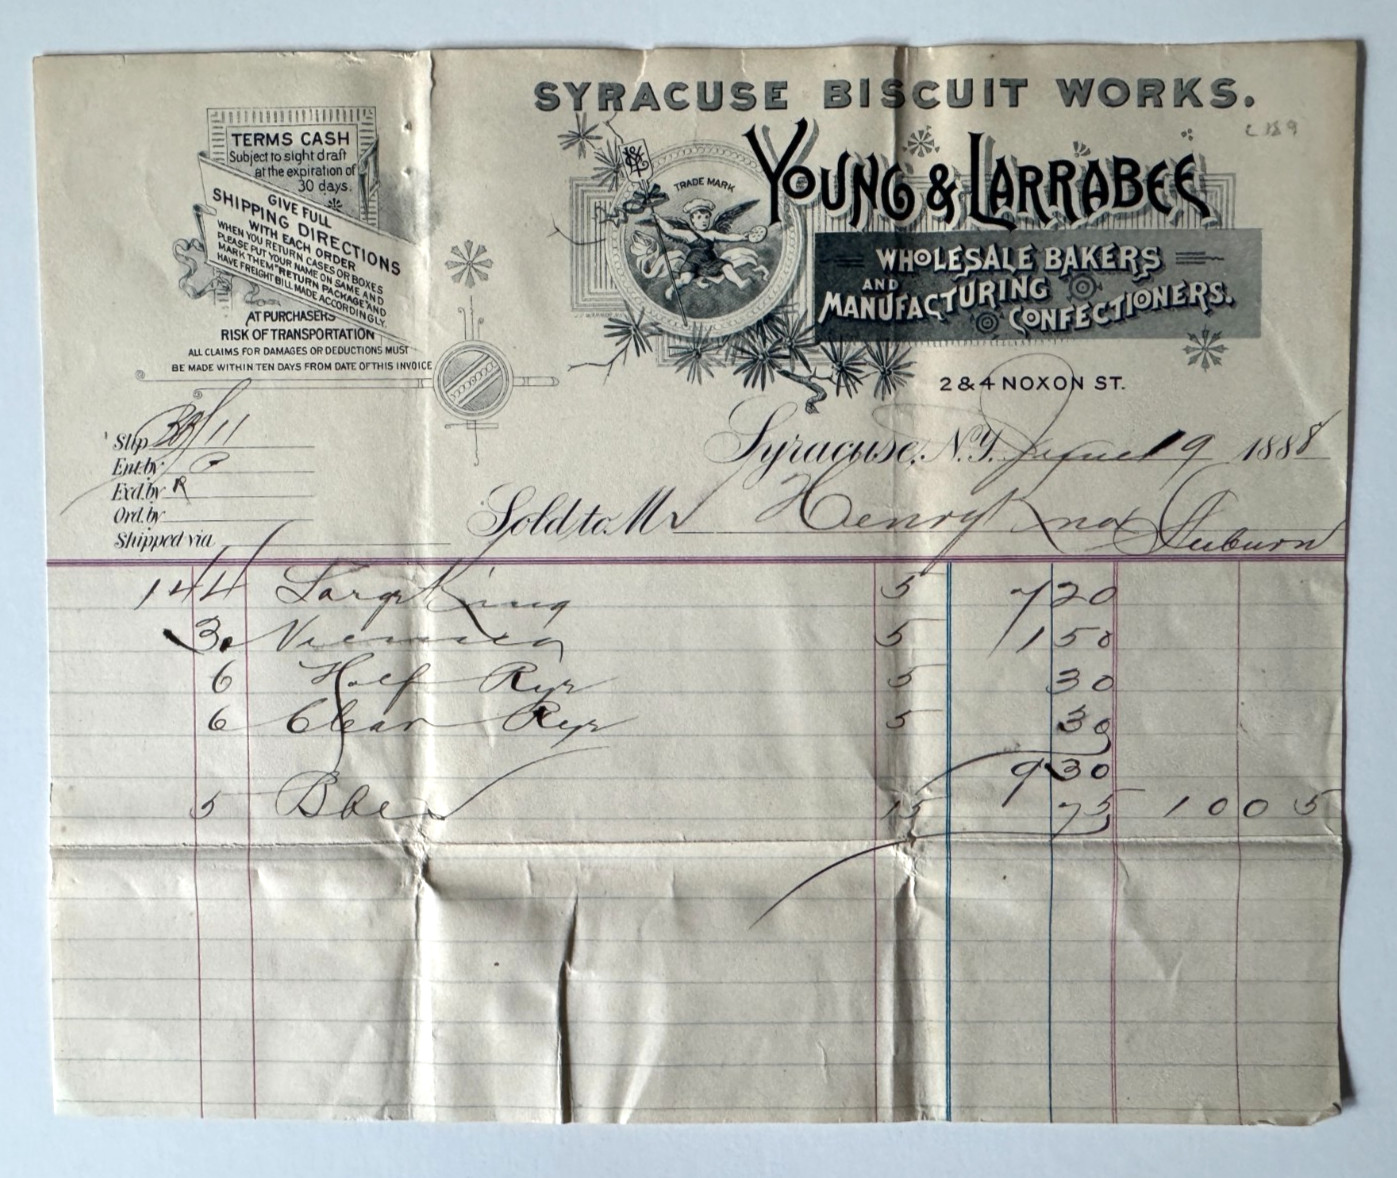 SYRACUSE BISCUIT WORKS.
YOUNG & LARRABEE
WHOLESALE BAKERS
AND
MANUFACTURING
CONFECTIONERS.
TRADE MARK
2 & 4 NOXON ST.
TERMS CASH
Subject to sight draft
at the expiration of
30 days.
GIVE FULL
SHIPPING DIRECTIONS
WITH EACH ORDER
WHEN YOU RETURN CASES OR BOXES
PLEASE PUT YOUR NAME ON SAME AND
MARK THEM "RETURN PACKAGE" AND
HAVE FREIGHT BILL MADE ACCORDINGLY.
AT PURCHASERS
RISK OF TRANSPORTATION
ALL CLAIMS FOR DAMAGES OR DEDUCTIONS MUST
BE MADE WITHIN TEN DAYS FROM DATE OF THIS INVOICE
Slip 11
Ent. by
Ex'd. by R
Ord. by
Shipped via
Syracuse, N.Y. June 19 1888
Sold to M Henry Knox Auburn
144 Large King 5 7 20
30 Vienna 5 1 50
6 Half Rye 5 30
6 Clear Rye 5 30
9 30
5 Bbls 15 75 10 05